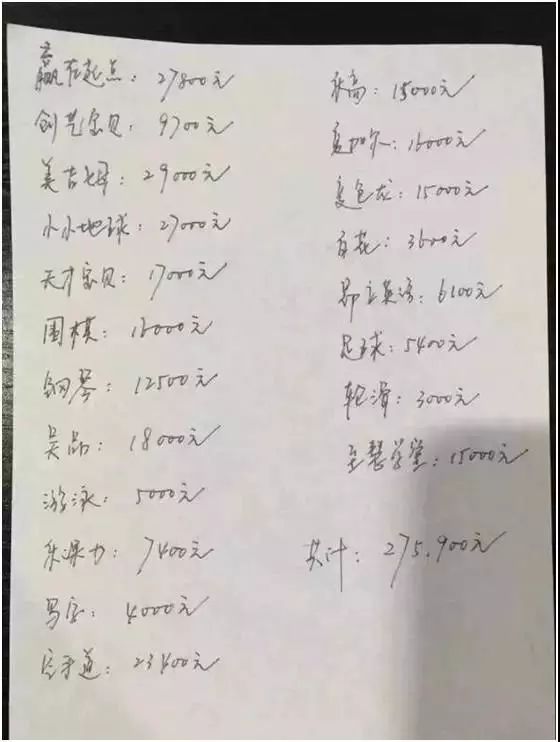 赢在起点：27800元
创艺宝贝：9700元
美吉姆：29000元
小小地球：27000元
天才宝贝：17000元
围棋：16000元
钢琴：12500元
：18000元
游泳：5000元
：7400元
写字：4000元
空手道：23400元
乐高：15000元
夏加尔：16000元
变色龙：15000元
百花：3600元
昂立英语：6100元
足球：5400元
轮滑：3000元
至慧学堂：15000元
共计：275,900元